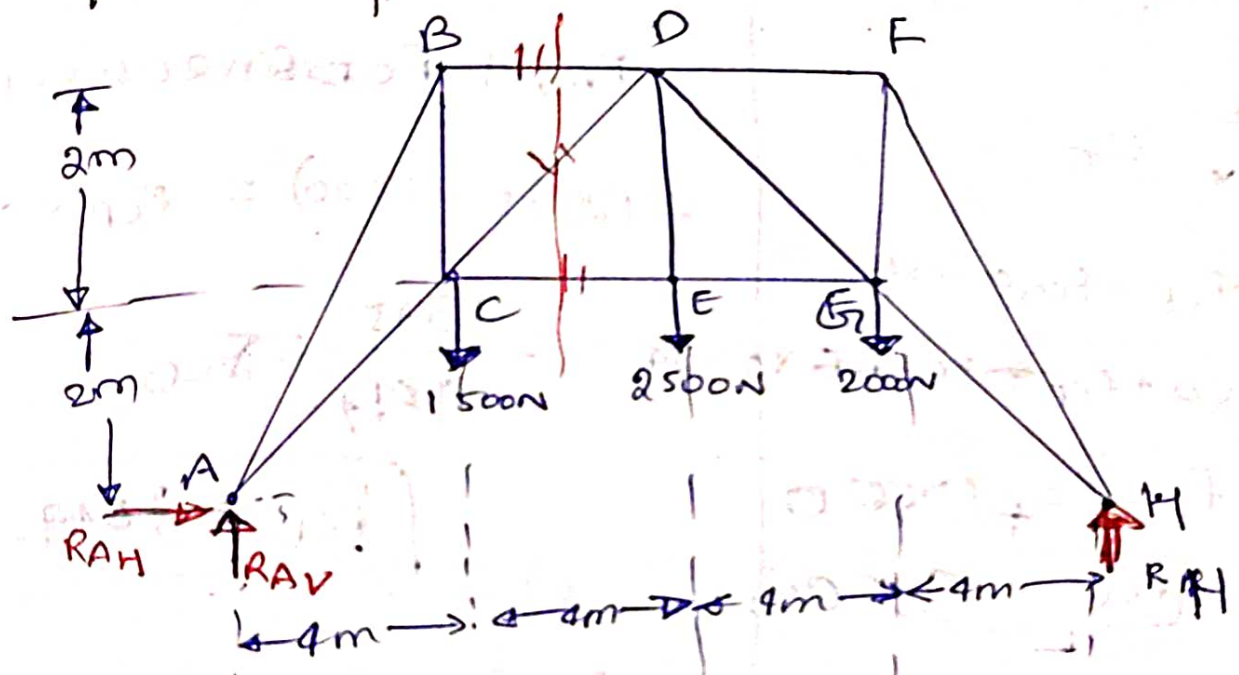 B D F
2m
C E G
2m
1500N 2500N 2000N
A H
RAH RAV RH
4m 4m 4m 4m